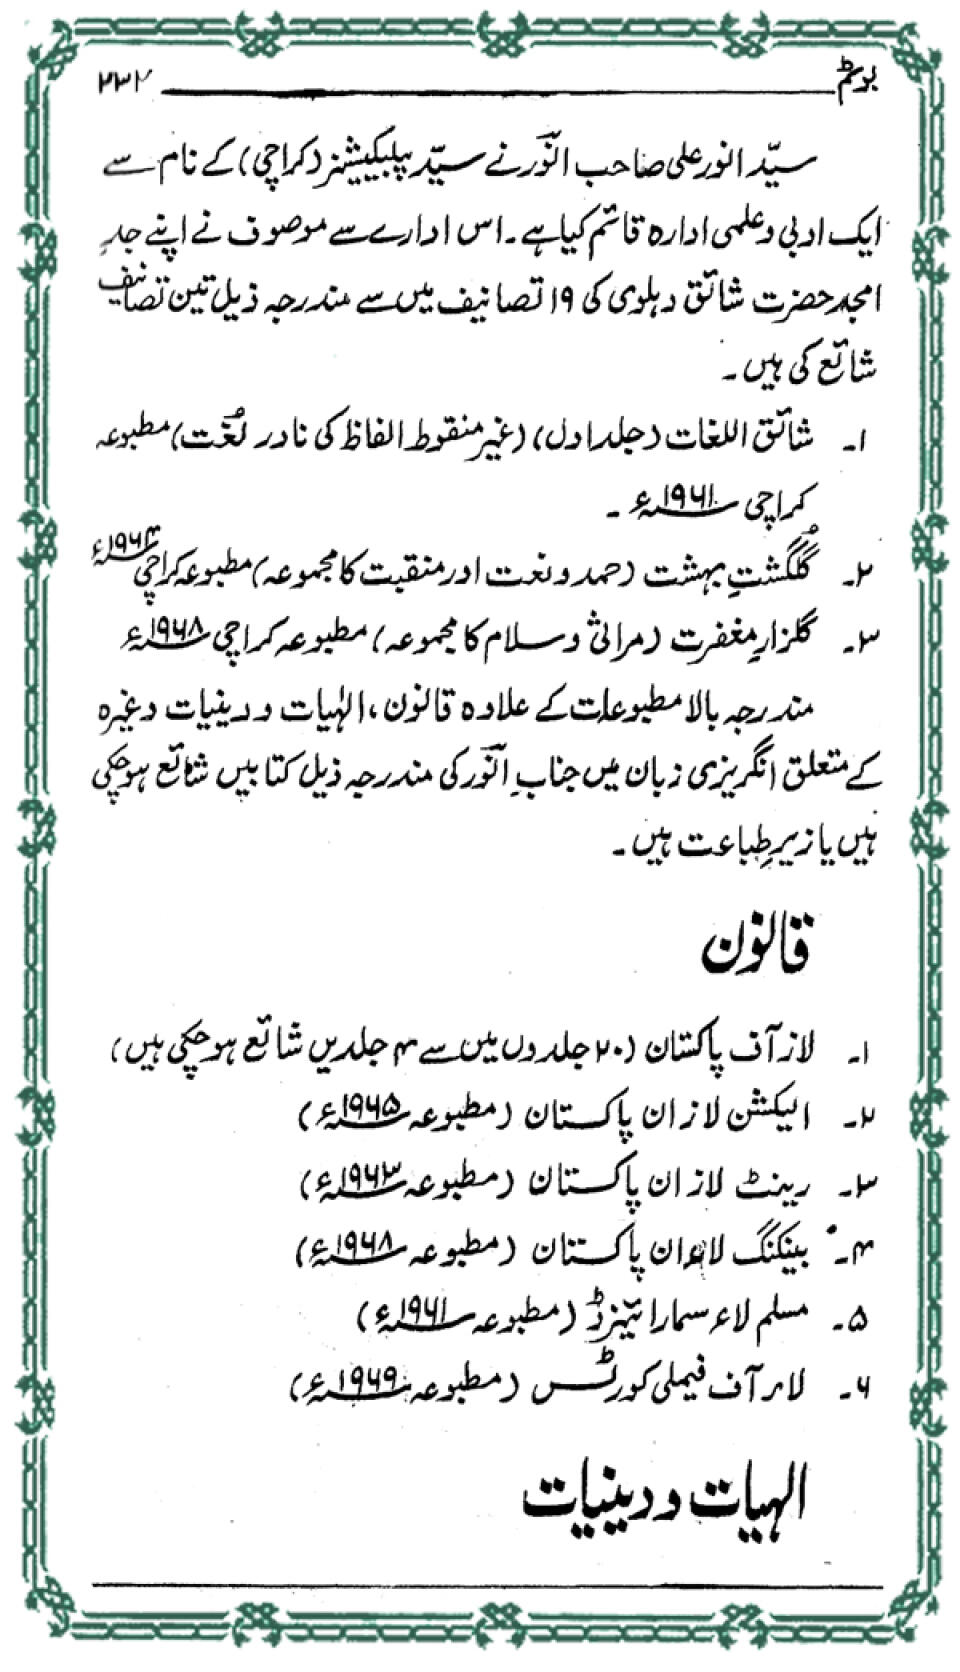 بوسٹم ۲۳۲
سیّد انور علی صاحب انوؔر نے سیّد پبلیکیشنز (کراچی) کے نام سے
ایک ادبی و علمی ادارہ قائم کیا ہے۔ اس ادارے سے موصوف نے اپنے جدِ
امجد حضرت شائق دہلوی کی ۱۹ تصانیف میں سے مندرجہ ذیل تین تصانیف
شائع کی ہیں۔
۱۔ شائق اللغات (جلد اول) (غیر منقوط الفاظ کی نادر لُغت) مطبوعہ
کراچی ۱۹۶۱ء۔
۲۔ گُلگشتِ بہشت (حمد و نعت اور منقبت کا مجموعہ) مطبوعہ کراچی ۱۹۶۴ء
۳۔ گلزارِ مغفرت (مراثی و سلام کا مجموعہ) مطبوعہ کراچی ۱۹۶۸ء
مندرجہ بالا مطبوعات کے علاوہ قانون، الٰہیات و دینیات وغیرہ
کے متعلق انگریزی زبان میں جنابِ انوؔر کی مندرجہ ذیل کتابیں شائع ہو چکی
ہیں یا زیرِ طباعت ہیں۔
قانون
۱۔ لاز آف پاکستان (۲۰ جلدوں میں سے ۴ جلدیں شائع ہو چکی ہیں)
۲۔ الیکشن لاز ان پاکستان (مطبوعہ ۱۹۶۵ء)
۳۔ رینٹ لاز ان پاکستان (مطبوعہ ۱۹۶۳ء)
۴۔ بینکنگ لاء ان پاکستان (مطبوعہ ۱۹۶۸ء)
۵۔ مسلم لاء سمارائیزڈ (مطبوعہ ۱۹۶۱ء)
۶۔ لاء آف فیملی کورٹس (مطبوعہ ۱۹۶۹ء)
الہیات و دینیات